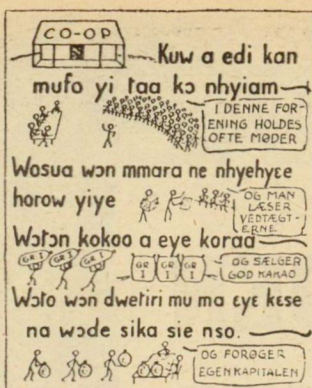 CO-OP
Kuw a edi kan
mufo yi taa kɔ nhyiam
I DENNE FOR-
ENING HOLDES
OFTE MØDER
Wosua wɔn mmara ne nhyehyɛe
horow yiye
OG MAN
LÆSER
VEDTÆGT-
ERNE
Wɔtɔn kokoo a eye koraa
GR I GR I GR I
GR I GR I GR I
OG SÆLGER
GOD KAKAO
Wɔto wɔn dwetiri mu ma ɛyɛ kɛse
na wɔde sika sie nso.
OG FORØGER
EGENKAPITALEN